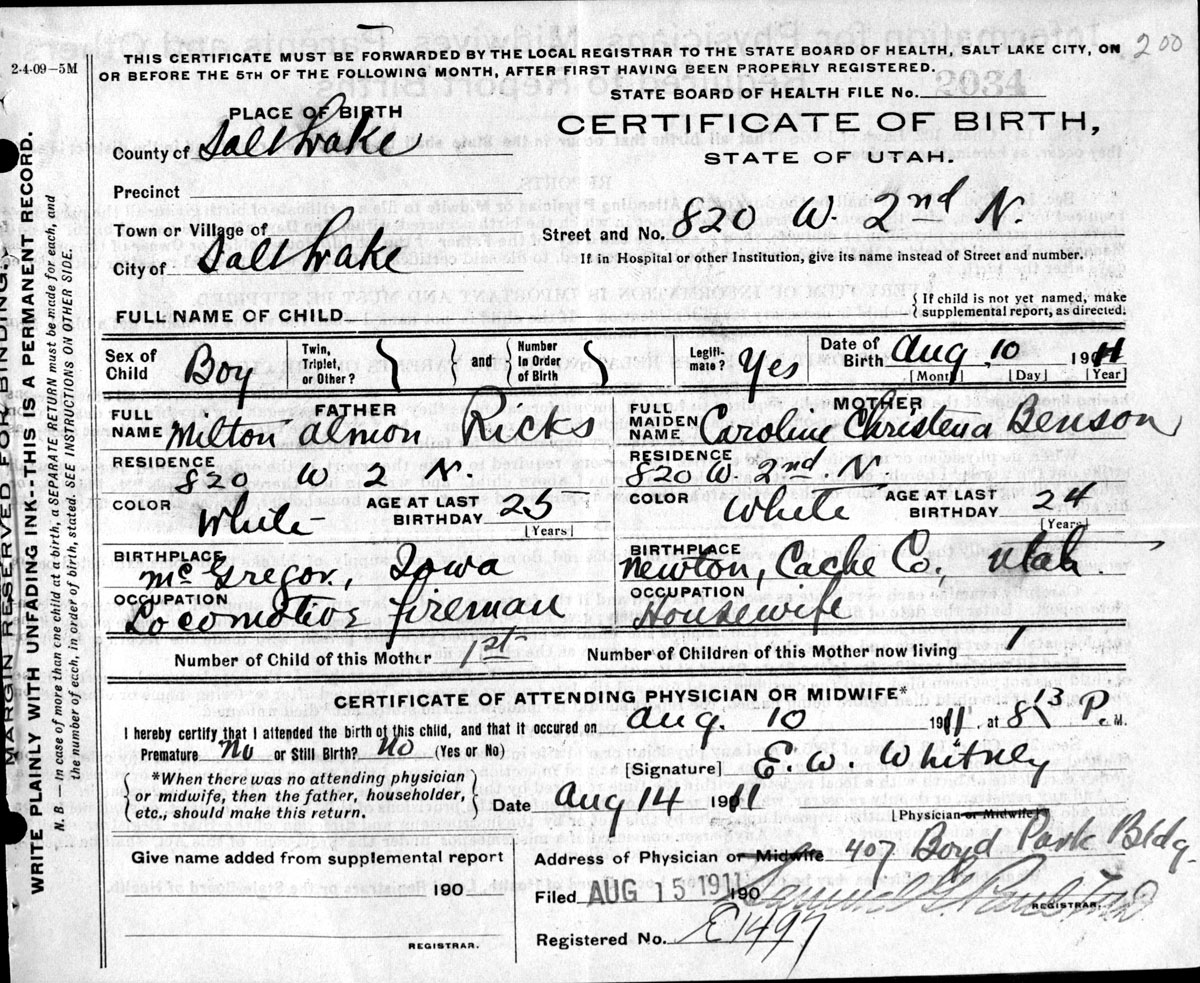 THIS CERTIFICATE MUST BE FORWARDED BY THE LOCAL REGISTRAR TO THE STATE BOARD OF HEALTH, SALT LAKE CITY, ON
OR BEFORE THE 5TH OF THE FOLLOWING MONTH, AFTER FIRST HAVING BEEN PROPERLY REGISTERED.
200
2-4-09-5M
STATE BOARD OF HEALTH FILE No.
2034
PLACE OF BIRTH
CERTIFICATE OF BIRTH,
STATE OF UTAH.
County of Salt Lake
Precinct
Town or Village of
Street and No. 820 W. 2nd N
City of Salt Lake
If in Hospital or other Institution, give its name instead of Street and number.
FULL NAME OF CHILD
{ If child is not yet named, make
supplemental report, as directed.
Sex of Child Boy
Twin, Triplet, or Other?
{ } and { Number in Order of Birth }
Legiti-mate? Yes
Date of Birth Aug 10 1911
[Month] [Day] [Year]
FATHER
FULL NAME Milton Almon Ricks
RESIDENCE 820 W. 2 N.
COLOR White AGE AT LAST BIRTHDAY 25 [Years]
BIRTHPLACE McGregor, Iowa
OCCUPATION Locomotive fireman
MOTHER
FULL MAIDEN NAME Caroline Christena Benson
RESIDENCE 820 W. 2nd N.
COLOR White AGE AT LAST BIRTHDAY 24 [Years]
BIRTHPLACE Newton, Cache Co., Utah
OCCUPATION Housewife
Number of Child of this Mother 1st
Number of Children of this Mother now living 1
CERTIFICATE OF ATTENDING PHYSICIAN OR MIDWIFE*
I hereby certify that I attended the birth of this child, and that it occured on Aug. 10 1911 at 8 13 P. M.
Premature No or Still Birth? No (Yes or No)
*When there was no attending physician
or midwife, then the father, householder,
etc., should make this return.
[Signature] E. W. Whitney
Date Aug 14 1911
[Physician or Midwife]
Give name added from supplemental report
190
REGISTRAR.
Address of Physician or Midwife 407 Boyd Park Bldg.
Filed AUG 15 1911 190
REGISTRAR.
Registered No. E1497
MARGIN RESERVED FOR BINDING.
WRITE PLAINLY WITH UNFADING INK---THIS IS A PERMANENT RECORD.
N. B.—In case of more than one child at birth, a SEPARATE RETURN must be made for each, and
the number of each, in order of birth, stated. SEE INSTRUCTIONS ON OTHER SIDE.